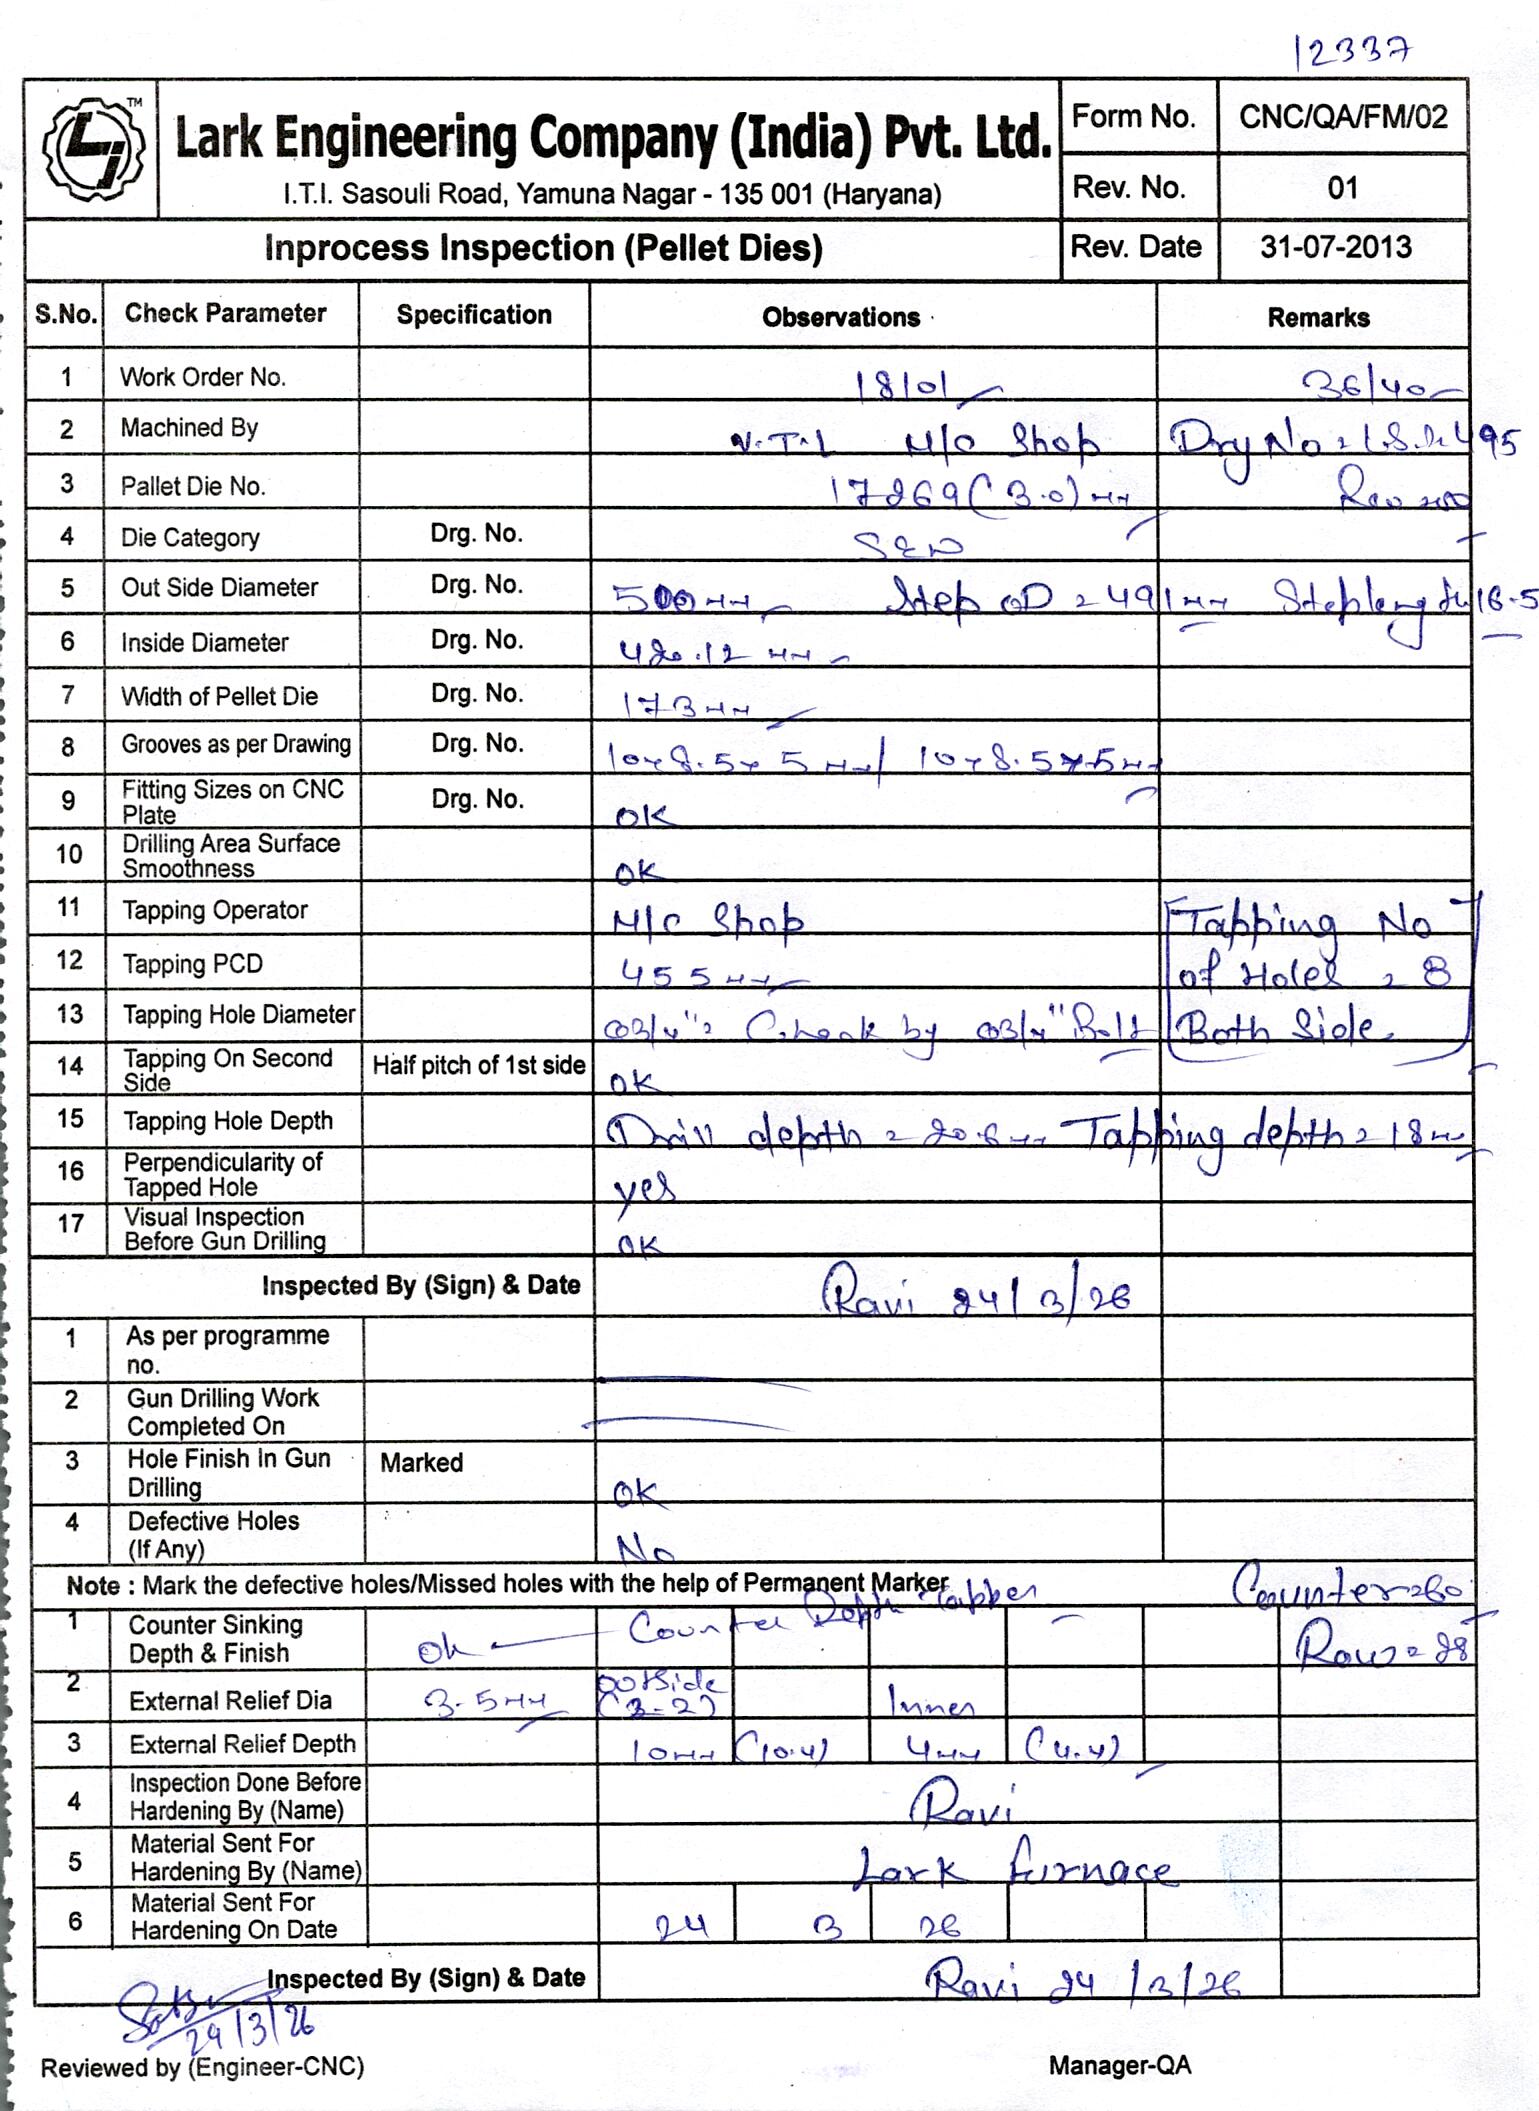 12337
TM
Lark Engineering Company (India) Pvt. Ltd.
I.T.I. Sasouli Road, Yamuna Nagar - 135 001 (Haryana)
Form No. CNC/QA/FM/02
Rev. No. 01
Inprocess Inspection (Pellet Dies) Rev. Date 31-07-2013
S.No. Check Parameter Specification Observations Remarks
1 Work Order No. 18101 36/40
2 Machined By V.T.L M/C Shop Drg No
3 Pallet Die No. 17269 (3.0) mm Rev
4 Die Category Drg. No.
5 Out Side Diameter Drg. No. 500 mm Step OD = 491 mm Step length 16.5
6 Inside Diameter Drg. No. 420.12 mm
7 Width of Pellet Die Drg. No. 173 mm
8 Grooves as per Drawing Drg. No. 10x8.5x5 mm/ 10x8.5x5mm
9 Fitting Sizes on CNC Plate Drg. No. OK
10 Drilling Area Surface Smoothness OK
11 Tapping Operator M/C Shop Tapping No
12 Tapping PCD 455 mm of Holes = 8
13 Tapping Hole Diameter Ø3/4" = Check by Ø3/4" Bolt Both Side
14 Tapping On Second Side Half pitch of 1st side OK
15 Tapping Hole Depth Drill depth = 20.6 mm Tapping depth = 18 mm
16 Perpendicularity of Tapped Hole yes
17 Visual Inspection Before Gun Drilling OK
Inspected By (Sign) & Date Ravi 24/3/26
1 As per programme no.
2 Gun Drilling Work Completed On
3 Hole Finish In Gun Drilling Marked OK
4 Defective Holes (If Any) No
Note : Mark the defective holes/Missed holes with the help of Permanent Marker Counter=60
1 Counter Sinking Depth & Finish Ok Counter Depth Rows = 28
2 External Relief Dia 3.5 mm outside (3-2) Inner
3 External Relief Depth 10mm (10.4) 4mm (4.4)
4 Inspection Done Before Hardening By (Name) Ravi
5 Material Sent For Hardening By (Name) Lark furnace
6 Material Sent For Hardening On Date 24 3 26
Inspected By (Sign) & Date Ravi 24/3/26
24/3/26
Reviewed by (Engineer-CNC) Manager-QA